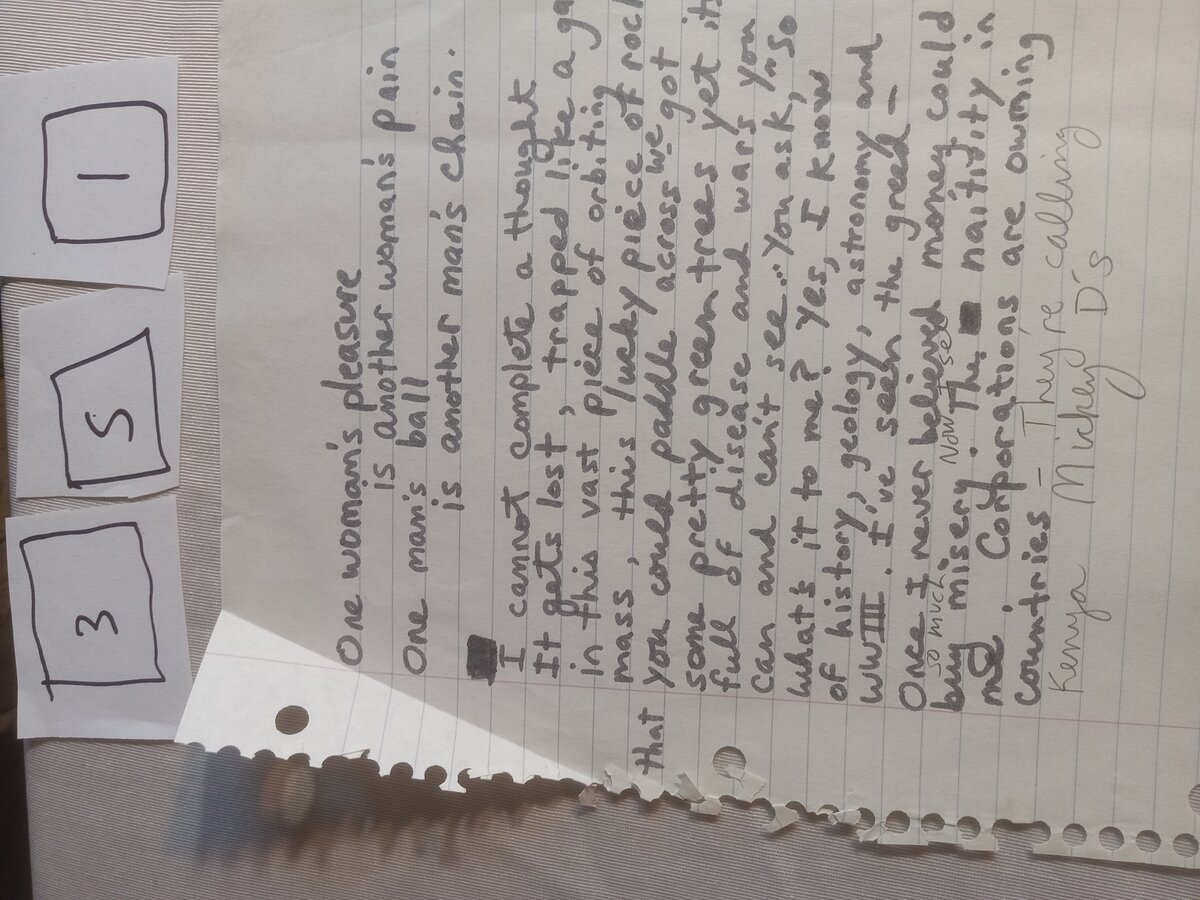 3 5 1
One woman's pleasure
is another woman's pain
One man's ball
is another man's chain.
I cannot complete a thought
It gets lost, trapped like a
in this vast piece of orbiting
mass, this lucky piece of rock
that you could paddle across we got
some pretty green trees yet its
full of disease and wars you
can and can't see... You ask, "So
what's it to me? Yes, I know
of history, geology, astronomy and
WWIII. I've seen the greed –
Once I never believed money could
buy so much misery. Now I see The naitidity in
Corporations are owning
countries – They're calling
Kenya Mickey D's